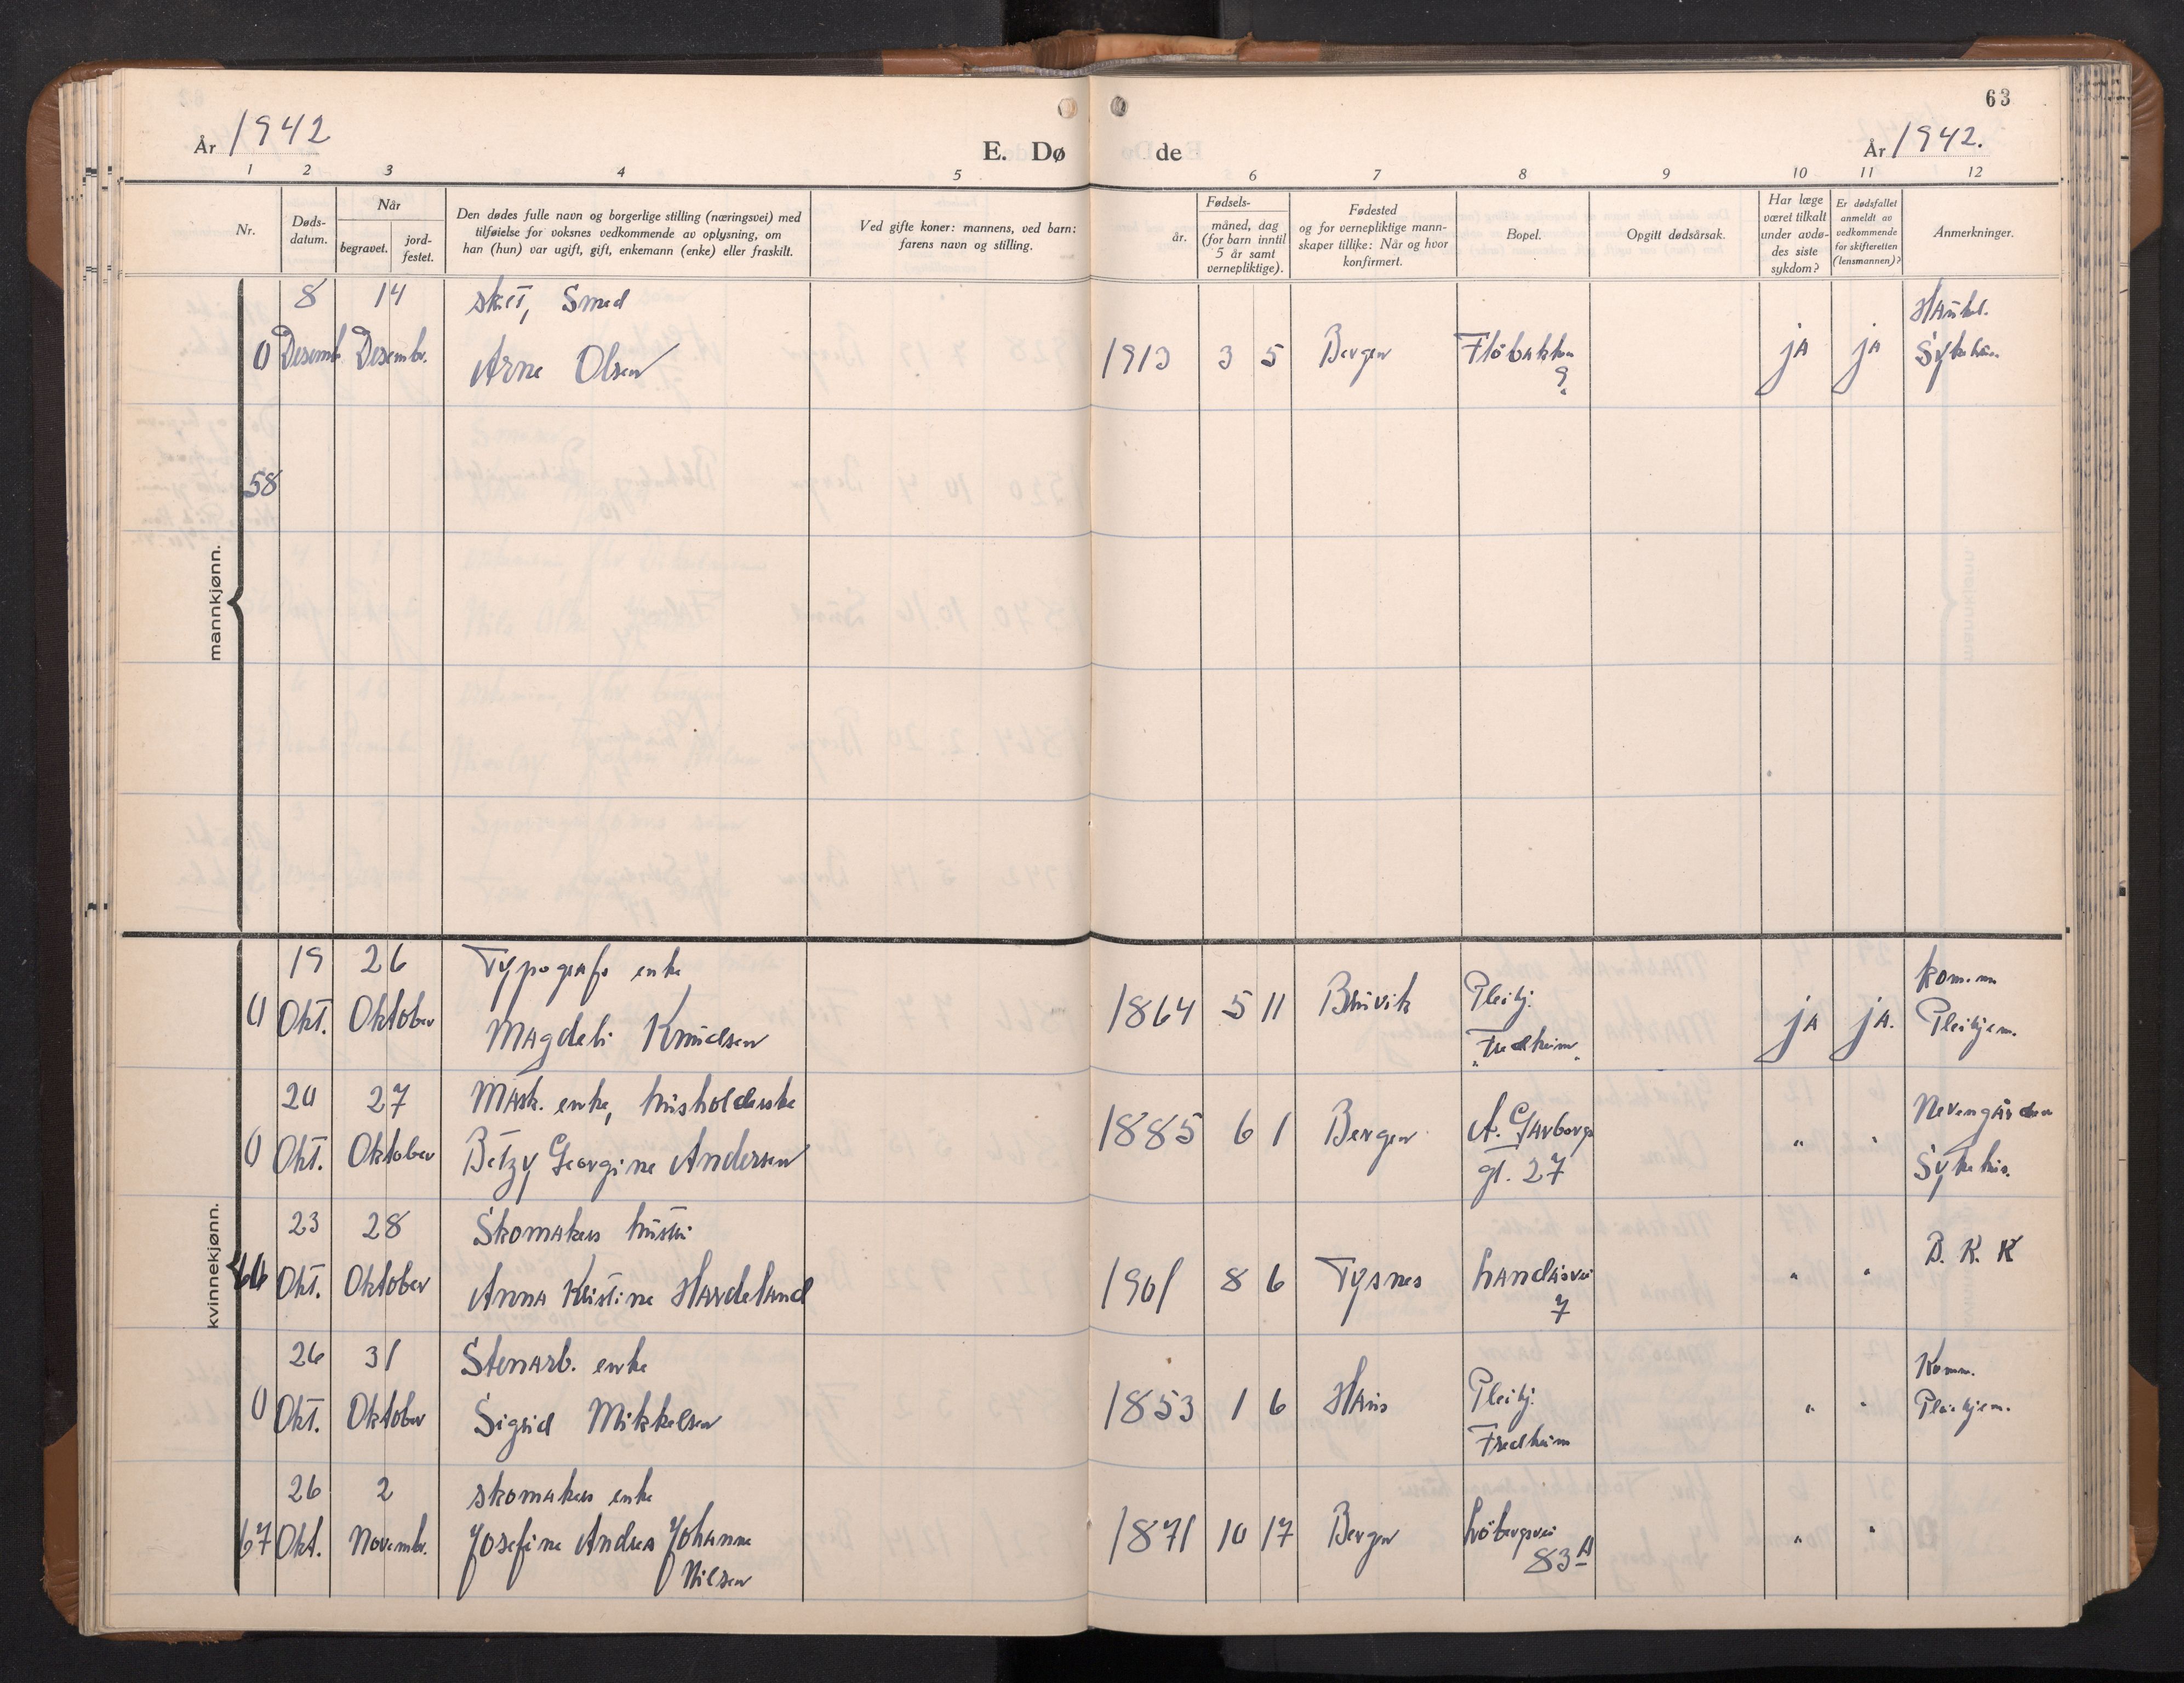 63
År 1942
E. Dø de
År 1942.
1 2 3 4 5 6 7 8 9 10 11 12
Nr.
Døds-
datum.
Når
begravet.
jord-
festet.
Den dødes fulle navn og borgerlige stilling (næringsvei) med
tilføielse for voksnes vedkommende av oplysning, om
han (hun) var ugift, gift, enkemann (enke) eller fraskilt.
Ved gifte koner: mannens, ved barn:
farens navn og stilling.
Fødsels-
år.
måned, dag
(for barn inntil
5 år samt
vernepliktige).
Fødested
og for vernepliktige mann-
skaper tillike: Når og hvor
konfirmert.
Bopel.
Opgitt dødsårsak.
Har læge
været tilkalt
under avdø-
des siste
sykdom?
Er dødsfallet
anmeldt av
vedkommende
for skifteretten
(lensmannen)?
Anmerkninger.
mannkjønn.
8 14 Smed Haukel.
0 Desemb. Desembr. Arne Olsen 1913 3 5 Bergen Fløbakken ja ja Sykehus
9
58
kvinnekjønn.
19 26 Typografs enke Komm.
0 Okt. Oktober Magdeli Knudsen 1864 5 11 Bruvik Pleihj. ja ja. Pleihjem.
"Fredheim"
20 27 Mask. enke, husholderske Nevengården
0 Okt. Oktober Betzy Georgine Andersen 1885 6 1 Bergen A. Garborgs " " Sykehus.
gt. 27
23 28 Skomakers hustru B. K. K
66 Okt. Oktober Anna Kristine Hardeland 1901 8 6 Tysnes Landåsvei " "
7
26 31 Stenarb. enke Komm.
0 Okt. Oktober Sigrid Mikkelsen 1853 1 6 Haus Pleihj. " " Pleihjem.
Fredheim
26 2 skomakers enke
67 Okt. Novembr. Josefine Andrea Johanne 1871 10 17 Bergen Løbergsvei " "
Nilsen 83 A